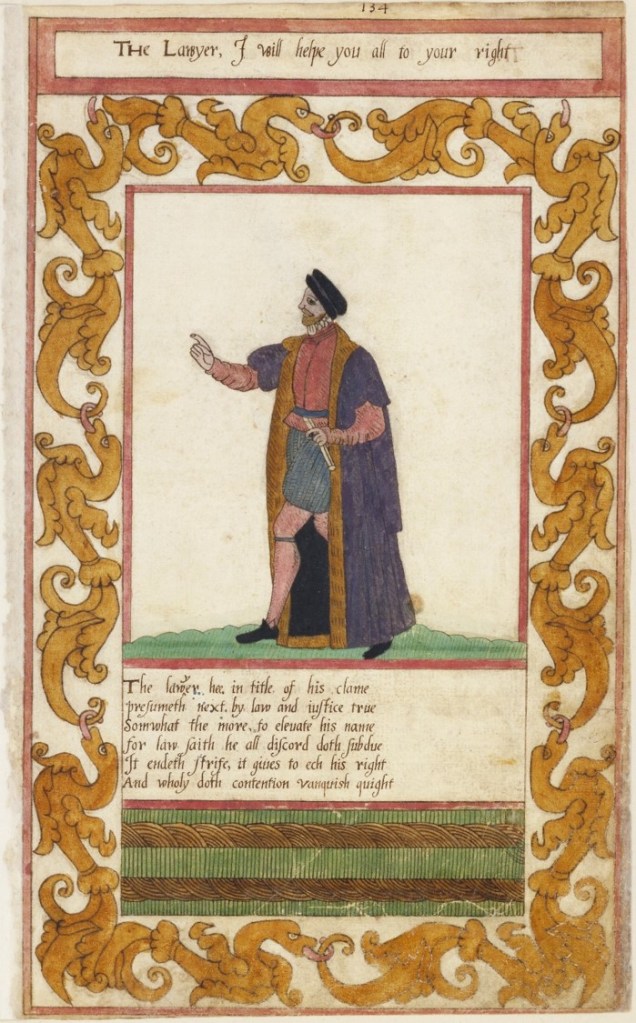 134
The Lawyer, I will helpe you all to your right
The lawyer, he, in title of his clame
presumeth next, by law and iustice true
Somwhat the more, to eleuate his name
for law saith he all discord doth subdue
It endeth strife, it giues to ech his right
And wholy doth contention vanquish quight